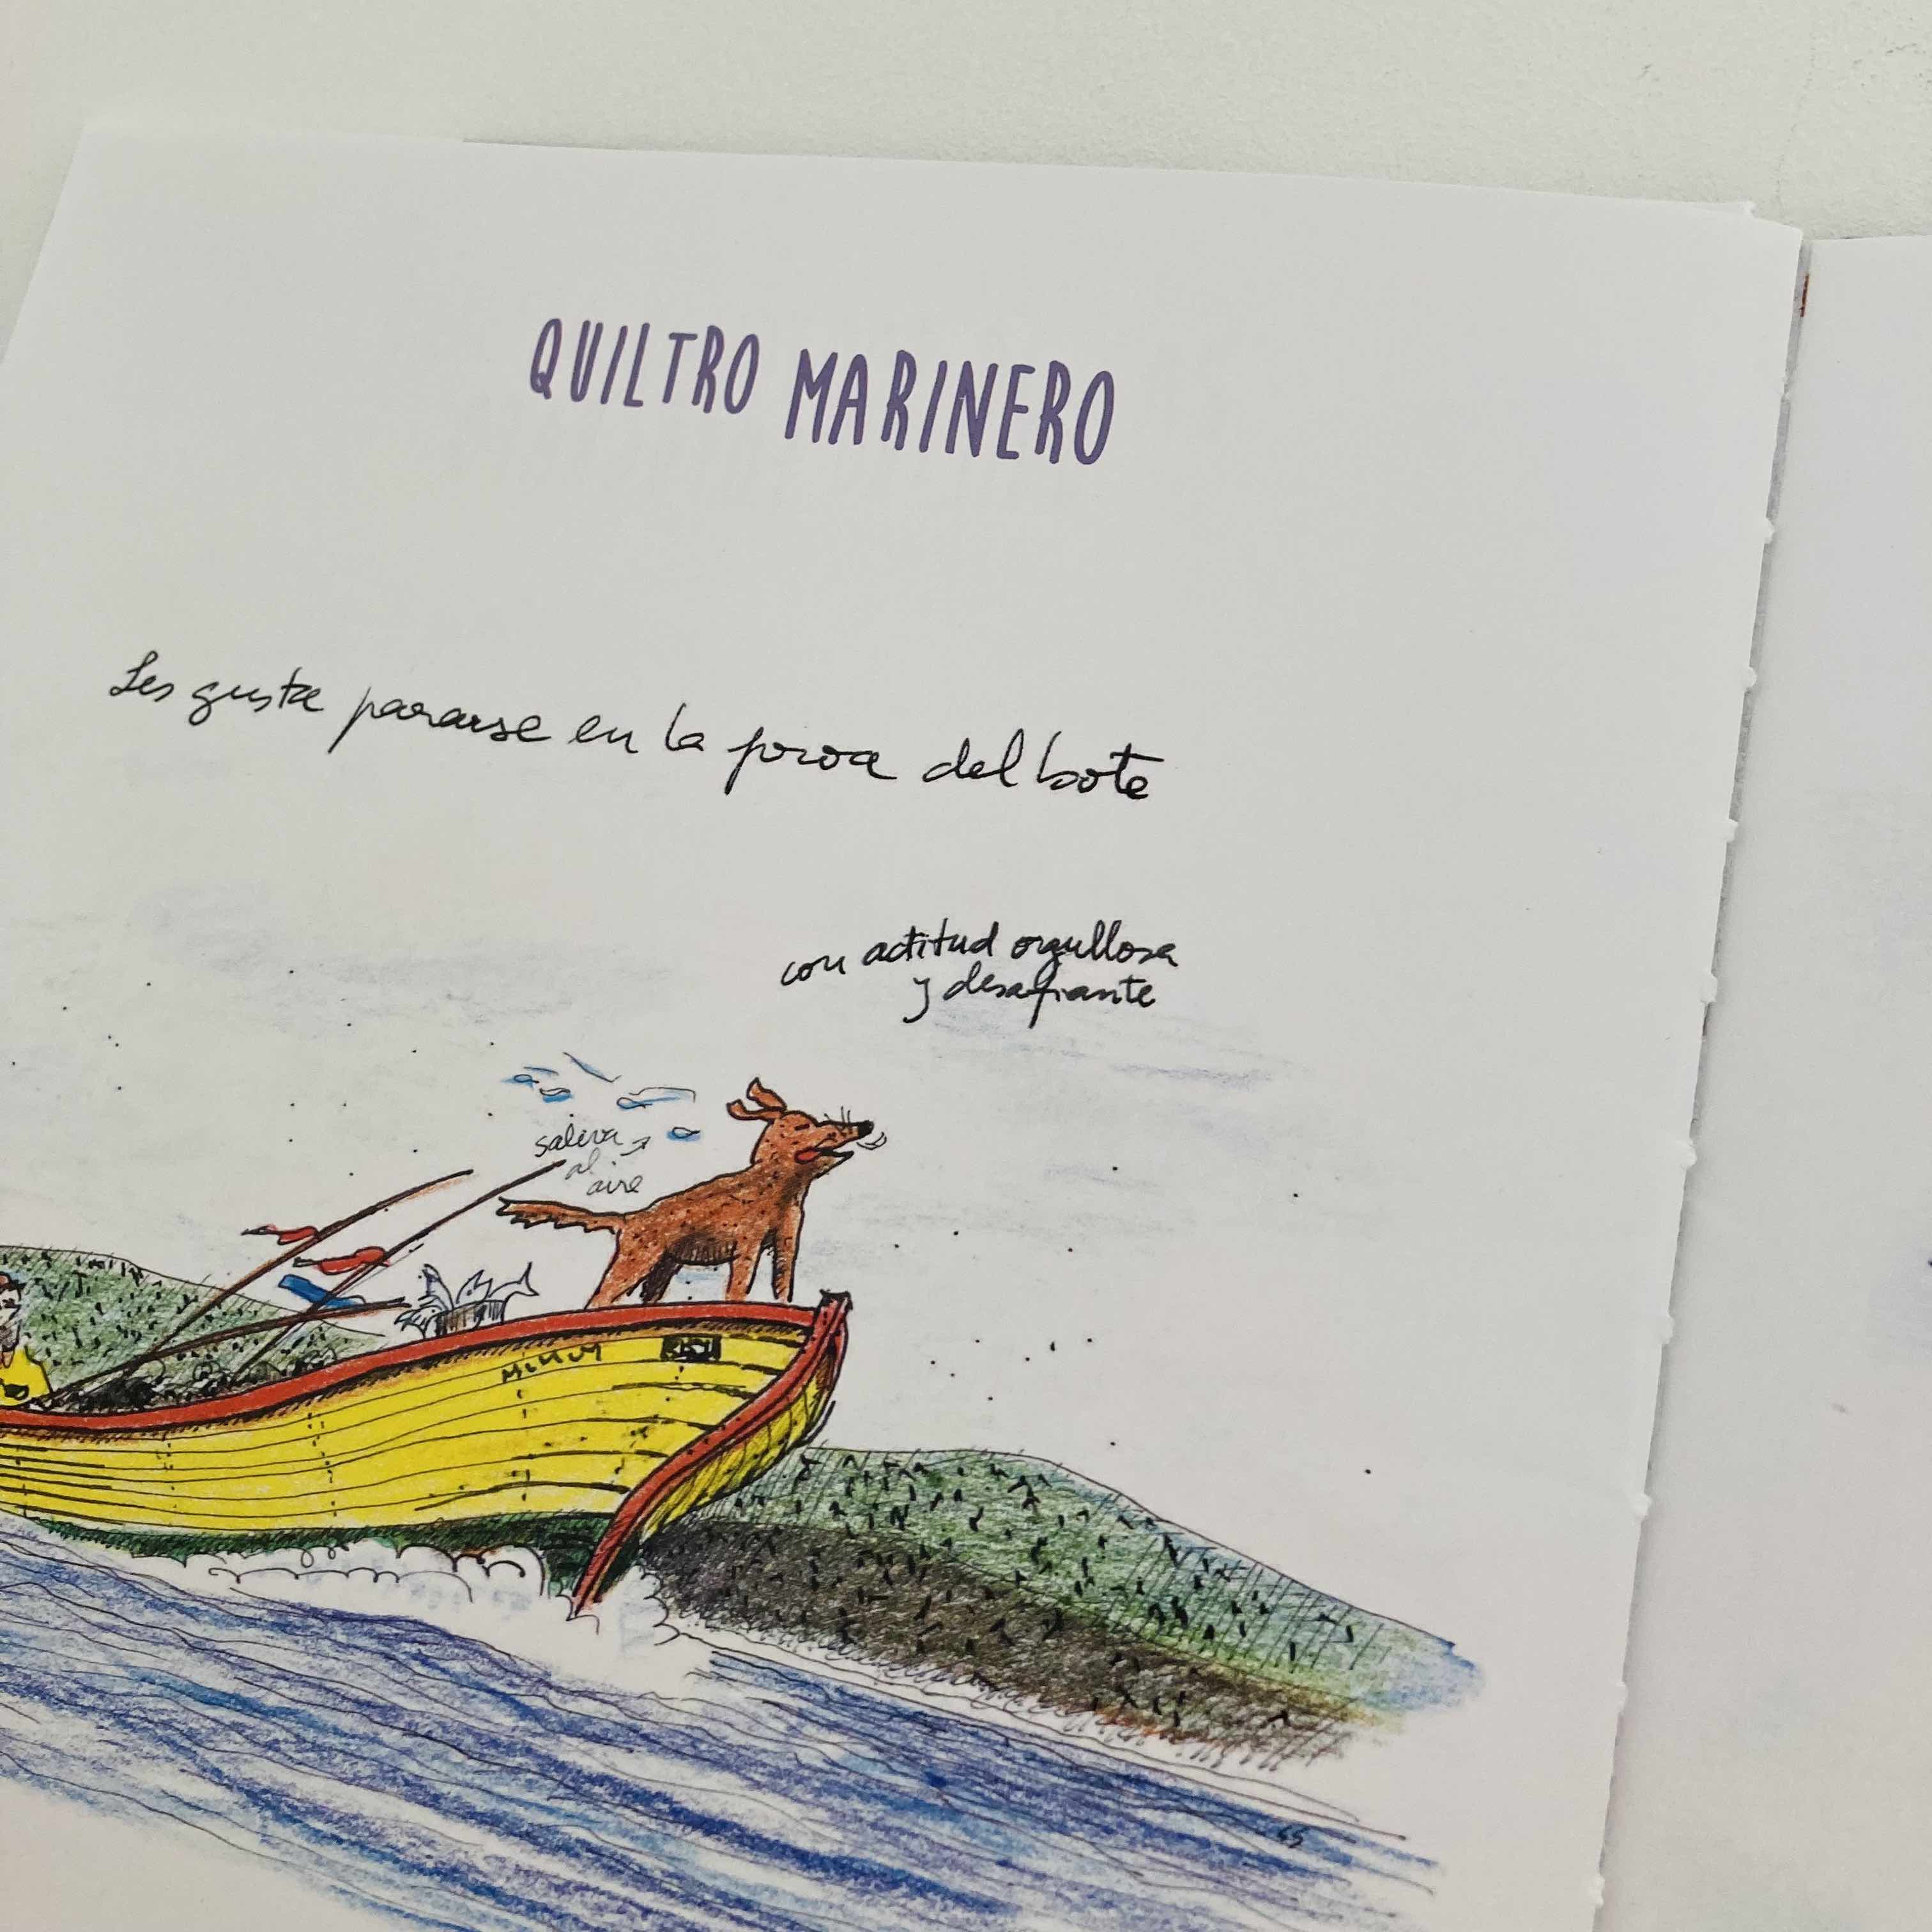 QUILTRO MARINERO
Les gusta pararse en la proa del bote
con actitud orgullosa
y desafiante
saliva
al
aire